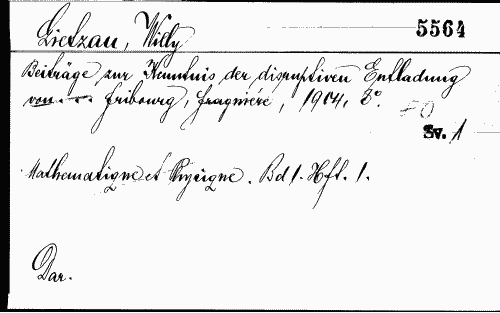 Lietzau, Willy
5564
Beiträge zur Kenntnis der disruptiven Entladung
von.... Fribourg, Fragnière, 1904, 8°.
50
Sv. 1
Mathematique et Physique. Bd 1. Hft. 1.
Dar.